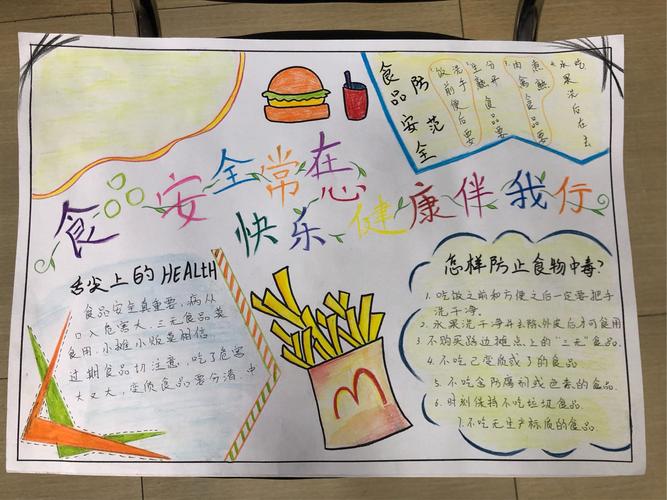 食品安全
防范
饭前便后要
洗手
生熟食品要
分开
肉禽食品要
煮熟
水果洗后在去
吃
食品安全常在心
快乐健康伴我行
舌尖上的HEALTH
食品安全真重要,病从
口入危害大.三无食品莫
食用.小摊小贩莫相信
过期食品切注意,吃了危害
大又大,变质食品要分清.中
怎样防止食物中毒?
1.吃饭之前和方便之后一定要把手
洗干净.
2.水果洗干净并去除外皮后才可食用
3.不购买路边摊点上的"三无"食品.
4.不吃已变质或了的食品
5.不吃含防腐剂或色素的食品.
6.时刻保持不吃垃圾食品.
7.不吃无生产标质的食品.